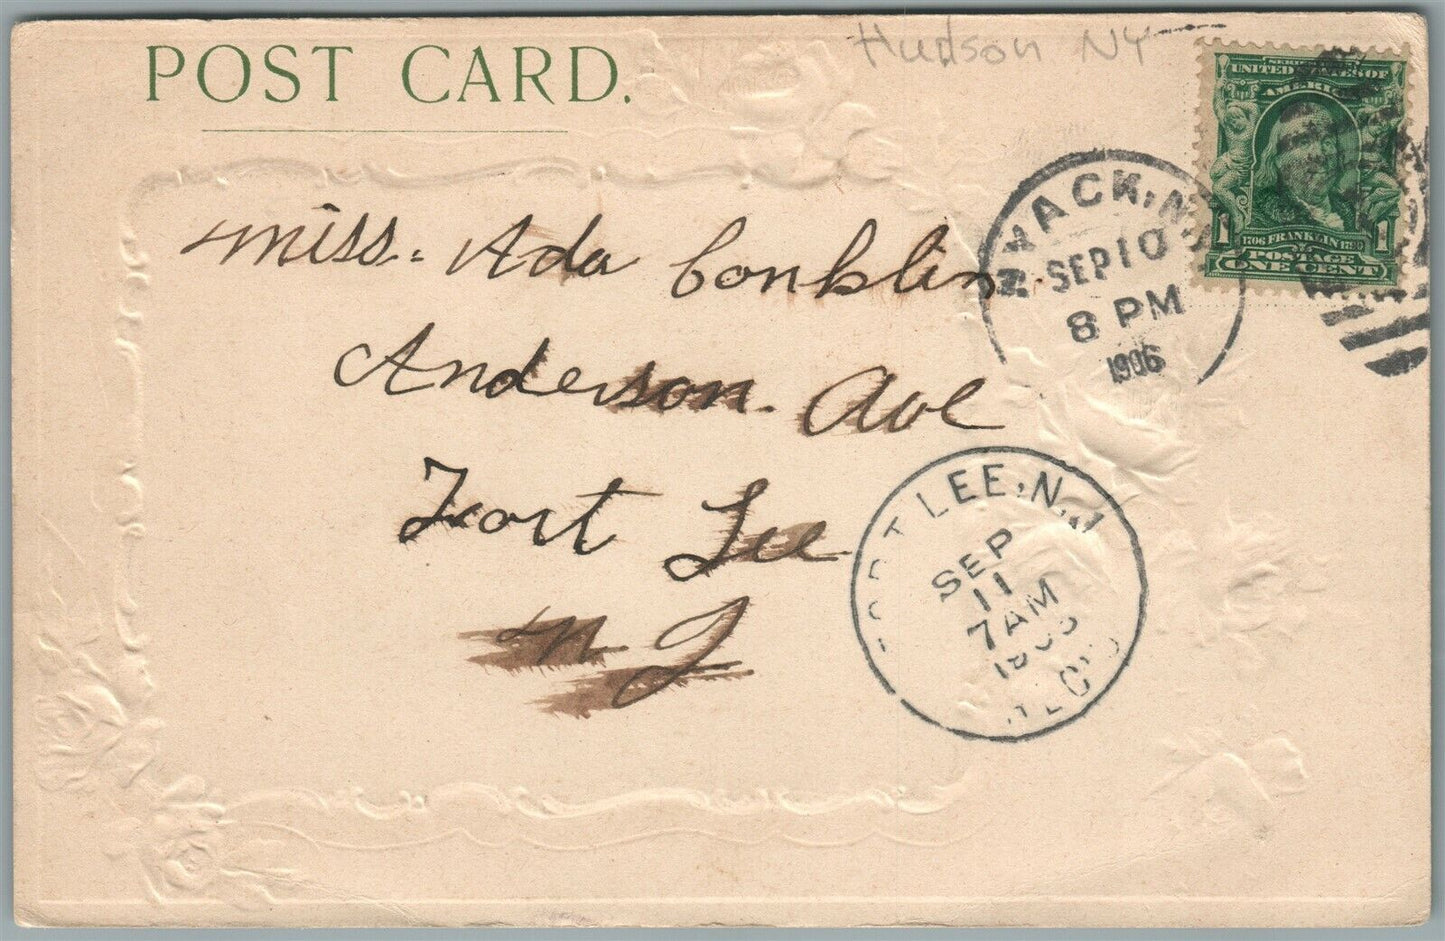 POST CARD.
Hudson NY
SERIES 1902
UNITED STATES OF
AMERICA
1706 FRANKLIN 1790
POSTAGE
1 1
ONE CENT
NYACK, N.Y.
SEP 10
8 PM
1906
Miss. Ada Conklin
Anderson. Ave
Fort Lee
N J
FORT LEE, N.J.
SEP
11
7 AM
1906
REC'D